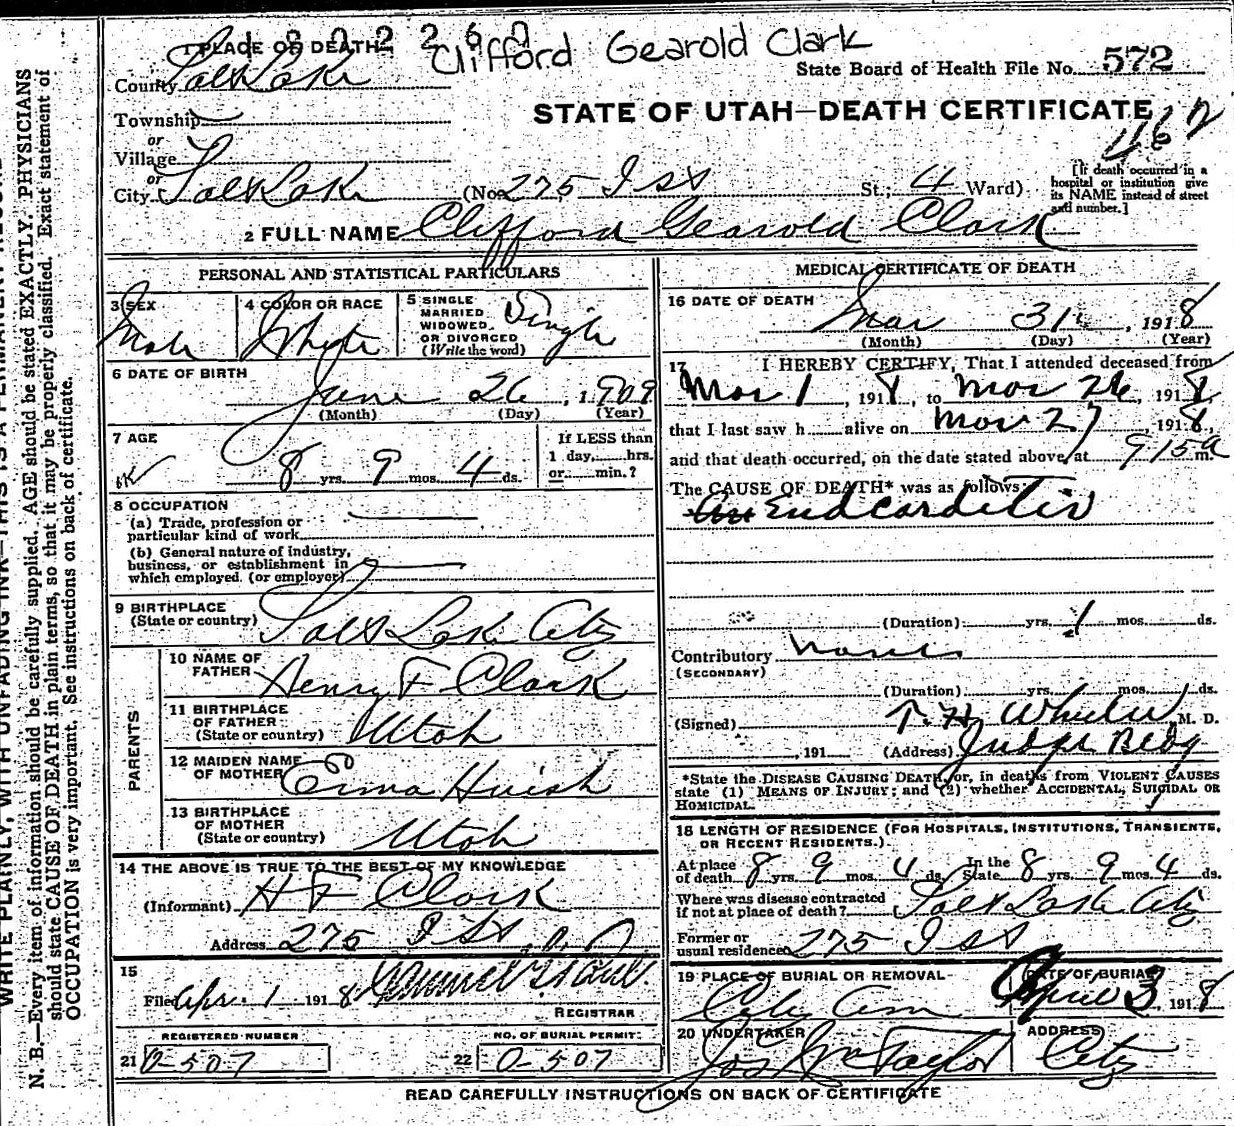 Clifford Gearold Clark
1 PLACE OF DEATH
State Board of Health File No. 572
County Salt Lake
STATE OF UTAH—DEATH CERTIFICATE
Township
or
Village
or
City Salt Lake (No. 275 I St St.; 4 Ward)
[If death occurred in a hospital or institution give its NAME instead of street and number.]
2 FULL NAME Clifford Gearold Clark
PERSONAL AND STATISTICAL PARTICULARS
3 SEX Male
4 COLOR OR RACE White
5 SINGLE MARRIED WIDOWED OR DIVORCED (Write the word) Single
6 DATE OF BIRTH
June 26, 1909
(Month) (Day) (Year)
7 AGE
8 yrs. 9 mos. 4 ds.
If LESS than 1 day,......hrs. or......min.?
8 OCCUPATION
(a) Trade, profession or particular kind of work
(b) General nature of industry, business, or establishment in which employed. (or employer)
9 BIRTHPLACE (State or country) Salt Lake City
PARENTS
10 NAME OF FATHER Henry F Clark
11 BIRTHPLACE OF FATHER (State or country) Utah
12 MAIDEN NAME OF MOTHER Erma Huish
13 BIRTHPLACE OF MOTHER (State or country) Utah
14 THE ABOVE IS TRUE TO THE BEST OF MY KNOWLEDGE
(Informant) H F Clark
Address 275 I St
15
Filed Apr. 1 1918
REGISTRAR
REGISTERED NUMBER
21 0-507
NO. OF BURIAL PERMIT:
22 0-507
MEDICAL CERTIFICATE OF DEATH
16 DATE OF DEATH
Mar 31, 1918
(Month) (Day) (Year)
17 I HEREBY CERTIFY, That I attended deceased from
Mar 1, 1918, to Mar 26, 1918,
that I last saw h...... alive on Mar 27, 1918,
and that death occurred, on the date stated above, at 9 15 a m.
The CAUSE OF DEATH* was as follows:
Endcarditis
(Duration) yrs. 1 mos. ds.
Contributory None
(SECONDARY)
(Duration) yrs. mos. ds.
(Signed) T. H. Wheeler, M. D.
, 191 (Address) Judge Bldg
*State the DISEASE CAUSING DEATH, or, in deaths from VIOLENT CAUSES state (1) MEANS OF INJURY; and (2) whether ACCIDENTAL, SUICIDAL OR HOMICIDAL.
18 LENGTH OF RESIDENCE (FOR HOSPITALS, INSTITUTIONS, TRANSIENTS, OR RECENT RESIDENTS.)
At place of death 8 yrs. 9 mos. 4 ds. In the State 8 yrs. 9 mos. 4 ds.
Where was disease contracted if not at place of death? Salt Lake City
Former or usual residence 275 I St
19 PLACE OF BURIAL OR REMOVAL City Cem
DATE OF BURIAL April 3 1918
20 UNDERTAKER Jos Wm Taylor
ADDRESS City
READ CAREFULLY INSTRUCTIONS ON BACK OF CERTIFICATE
N. B.—Every item of information should be carefully supplied. AGE should be stated EXACTLY. PHYSICIANS
should state CAUSE OF DEATH in plain terms, so that it may be properly classified. Exact statement of
OCCUPATION is very important. See instructions on back of certificate.